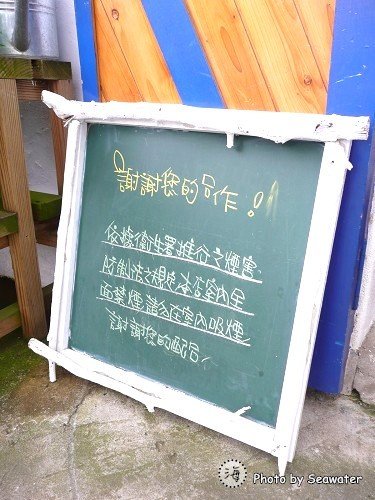 謝謝您的合作!
依據衛生署推行之煙害
防制法之規定本店室內全
面禁煙請勿在室內吸煙
謝謝您的配合!
海 Photo by Seawater